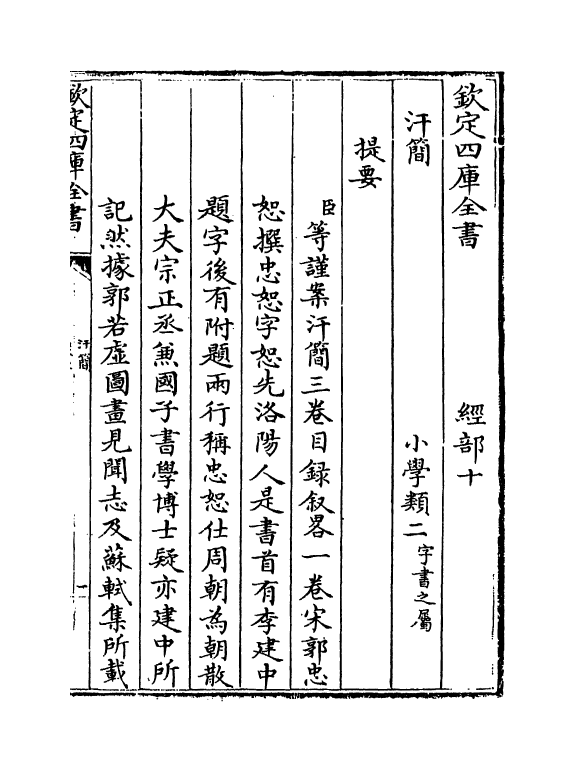 欽定四庫全書　　　　經部十
汗簡　　　　小學類二字書之屬
提要
臣等謹案汗簡三卷目録叙畧一卷宋郭忠
恕撰忠恕字恕先洛陽人是書首有李建中
題字後有附題兩行稱忠恕仕周朝為朝散
大夫宗正丞兼國子書學博士疑亦建中所
記然據郭若虛圖畫見聞志及蘇軾集所載
欽定四庫全書
汗簡